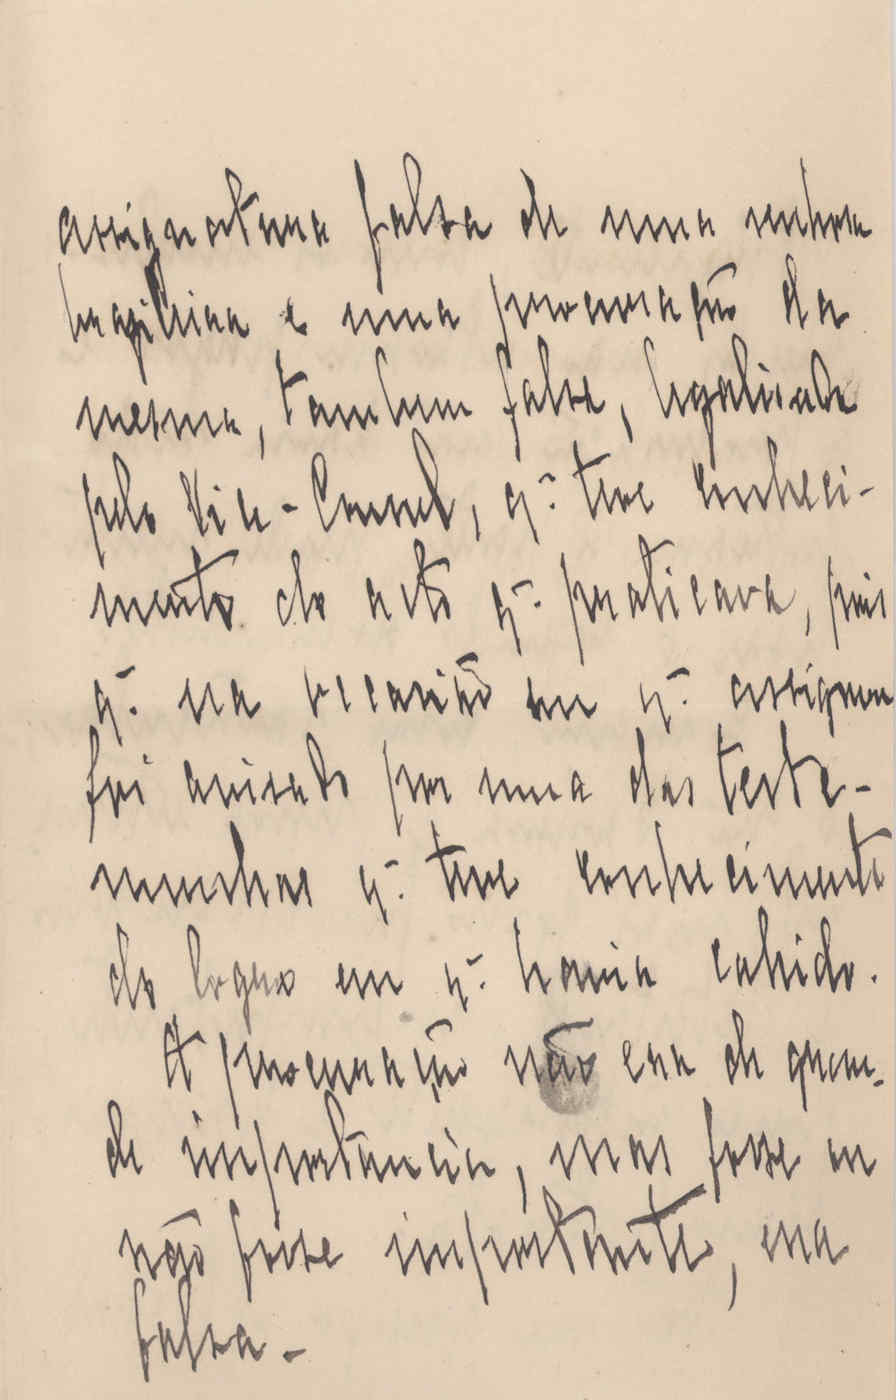 assignatura falsa de uma senhora
brazileira e uma procuração da
mesma, tambem falsa, legalisada
pelo Vice-Consul, q. teve conheci-
mento do acto q. praticava, pois
q. na occasião em q. assignou
foi avisado por uma das teste-
munhas q. teve conhecimento
do logro em q. havia cahido.
A procuração não era de gran-
de importancia, mas fosse ou
não fosse importante, era
falsa.-